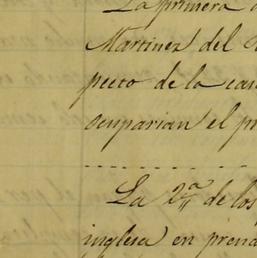 La primera
Martinez del
pecto de la cas
ocuparian el pr
La 2ª de los
inglesa en prend